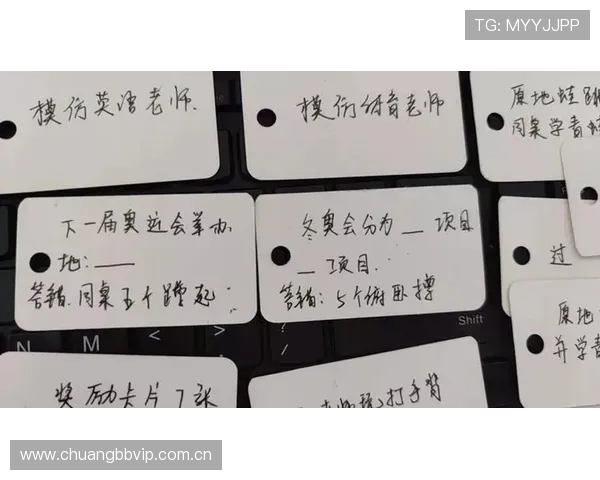 TG: MYYJJPP
模仿英语老师.
模仿体育老师
原地蛙跳
同桌学青蛙
下一届奥运会举办
地:——
答错.同桌五个蹲起
冬奥会分为__项目
__项目.
答错:5个俯卧撑
过
原地
并学青
N
M
<
>
?
/
Shift
奖励卡片7张
打手背
www.chuangbbvip.com.cn